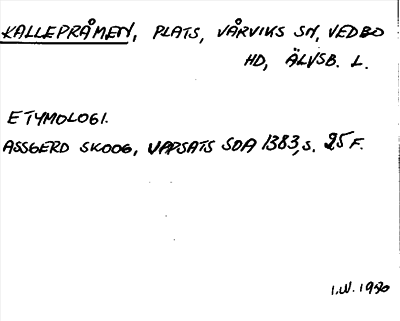 KALLEPRÅMEN, PLATS, VÅRVIKS SN, VEDBO
HD, ÄLVSB. L.
ETYMOLOGI.
ASSGERD SKOOG, UPPSATS SOA 1383, S. 25 F.
I.W. 1970